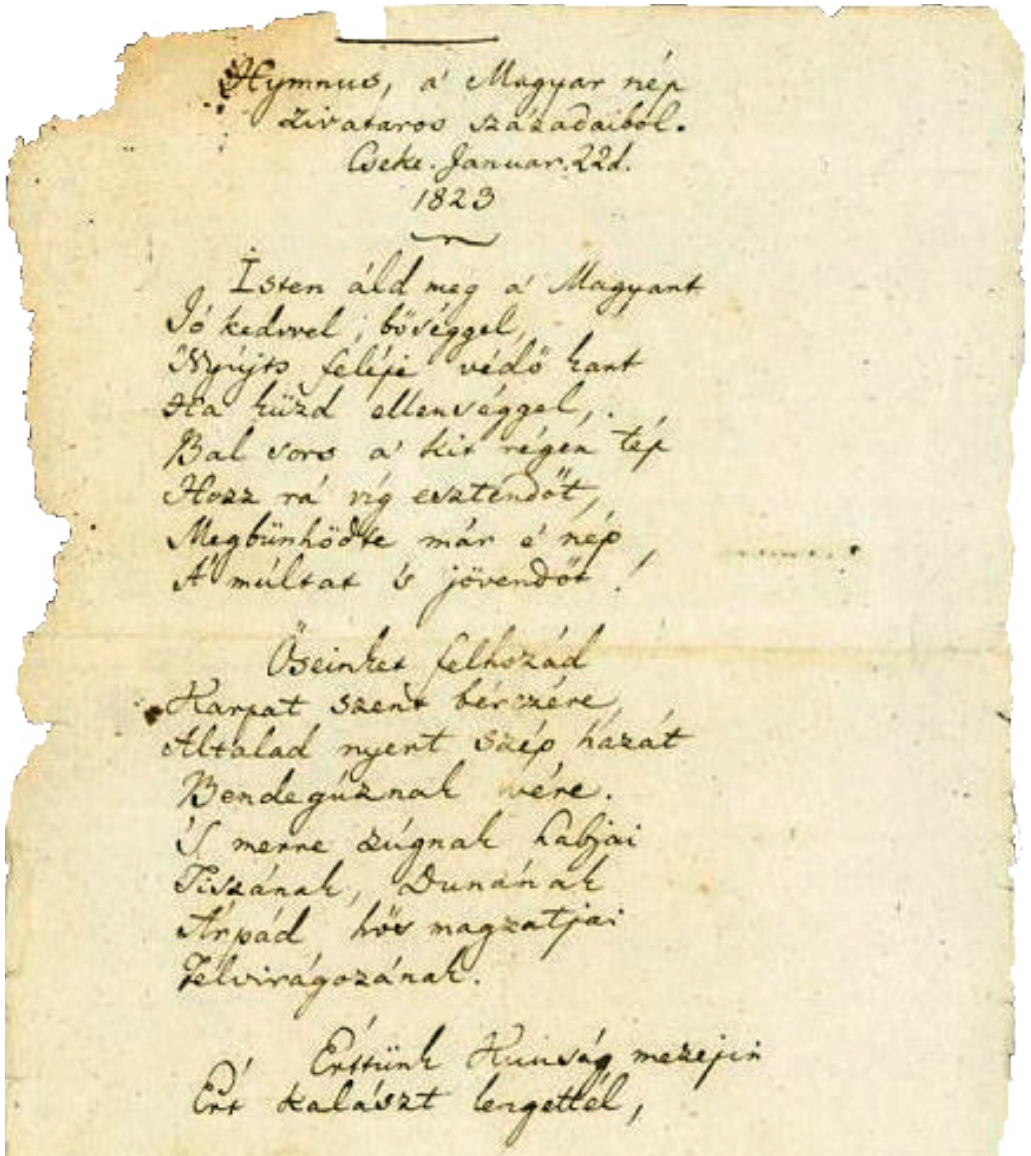 Hymnus, a' Magyar nép
zivataros századaiból.
Cseke. Januar. 22d.
1823
Isten áld meg a' Magyart
Jó kedvvel, bőséggel,
Nyújts feléje védő kart
Ha küzd ellenséggel,
Bal sors a' kit régen tép
Hozz rá víg esztendőt,
Megbünhödte már e' nép
A' múltat 's jövendőt!
Őseinket felhozád
Kárpat szent bérczére,
Általad nyert szép hazát
Bendegúznak vére.
'S merre zúgnak habjai
Tiszának, Dunának
Árpád hős magzatjai
Felvirágozának.
Értünk Kunság mezejin
Ért kalászt lengettél,